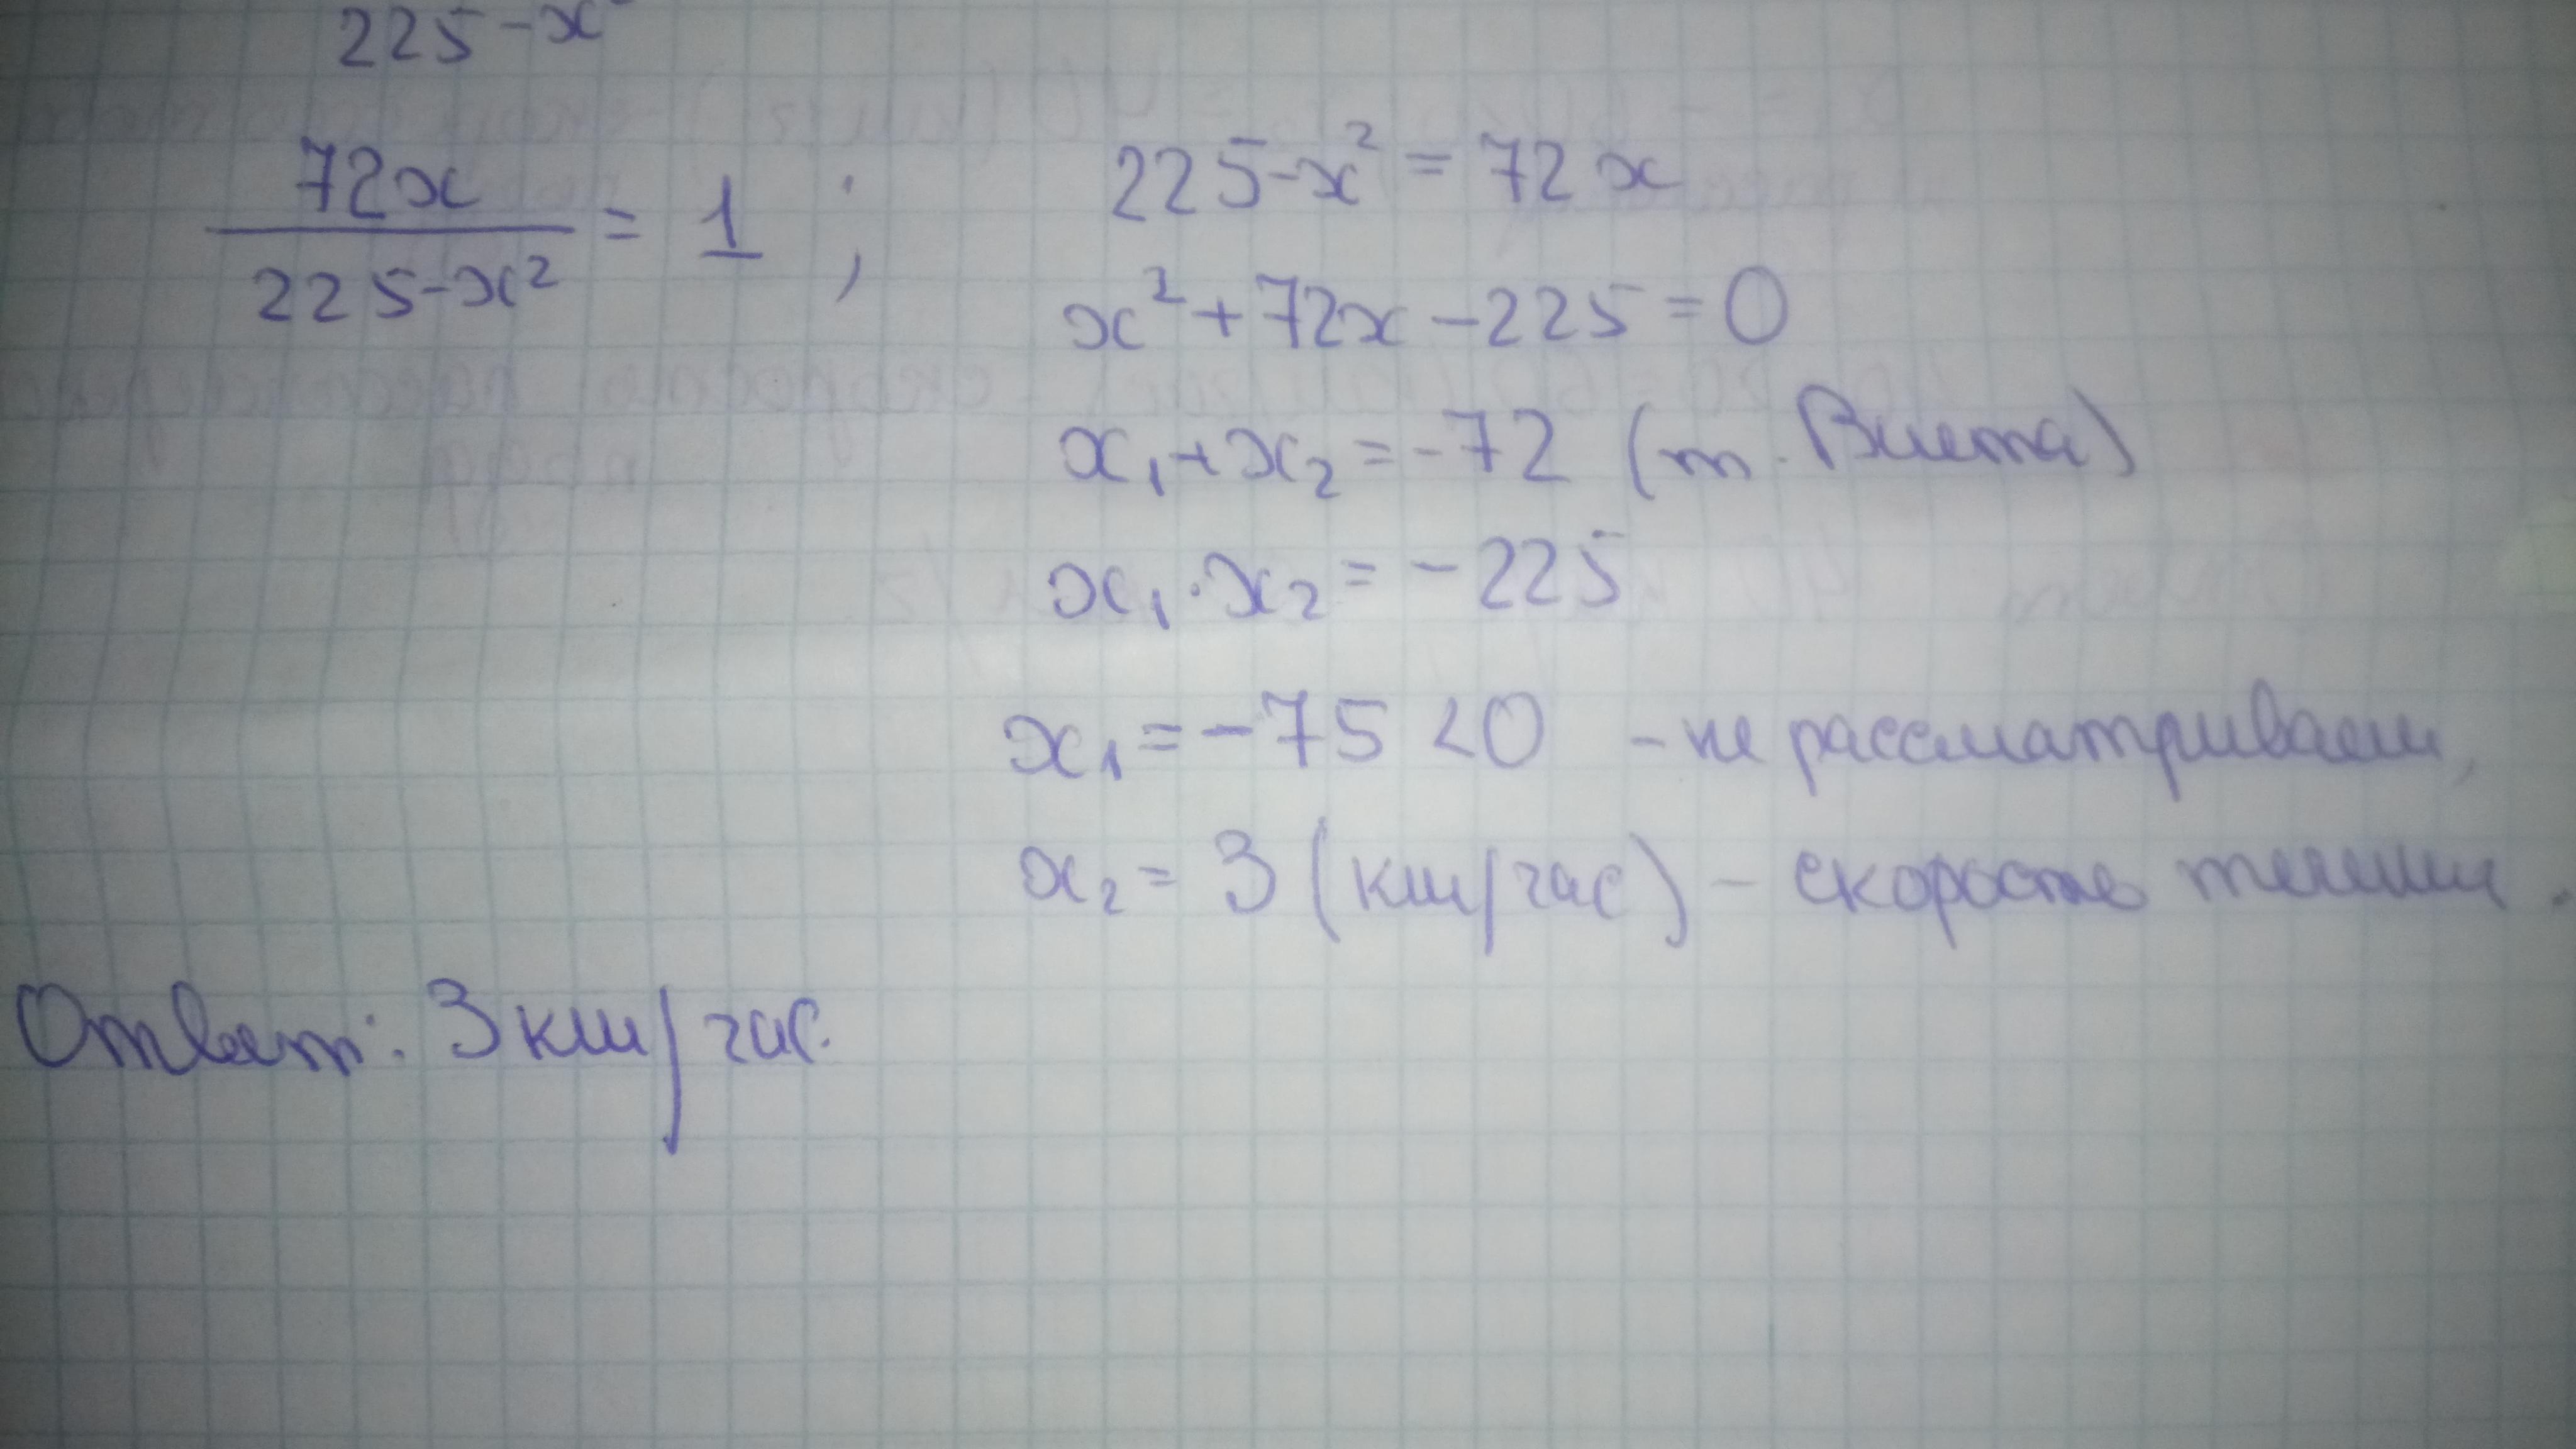 225-x
72x
───── = 1 ;
225-x²
225-x² = 72x
x²+72x-225=0
x₁+x₂=-72 (т. Виета)
x₁·x₂=-225
x₁=-75<0 - не рассматриваем,
x₂=3 (км/час) - скорость течения.
Ответ: 3 км/час.